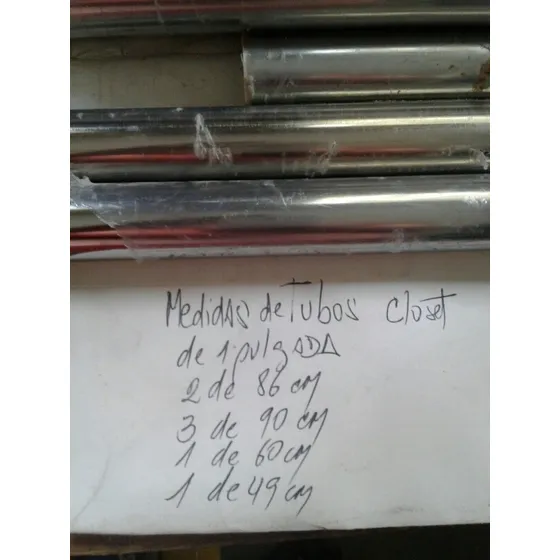 Medidas de Tubos Closet
de 1 pulgADA
2 de 86 cm
3 de 90 cm
1 de 60 cm
1 de 49 cm